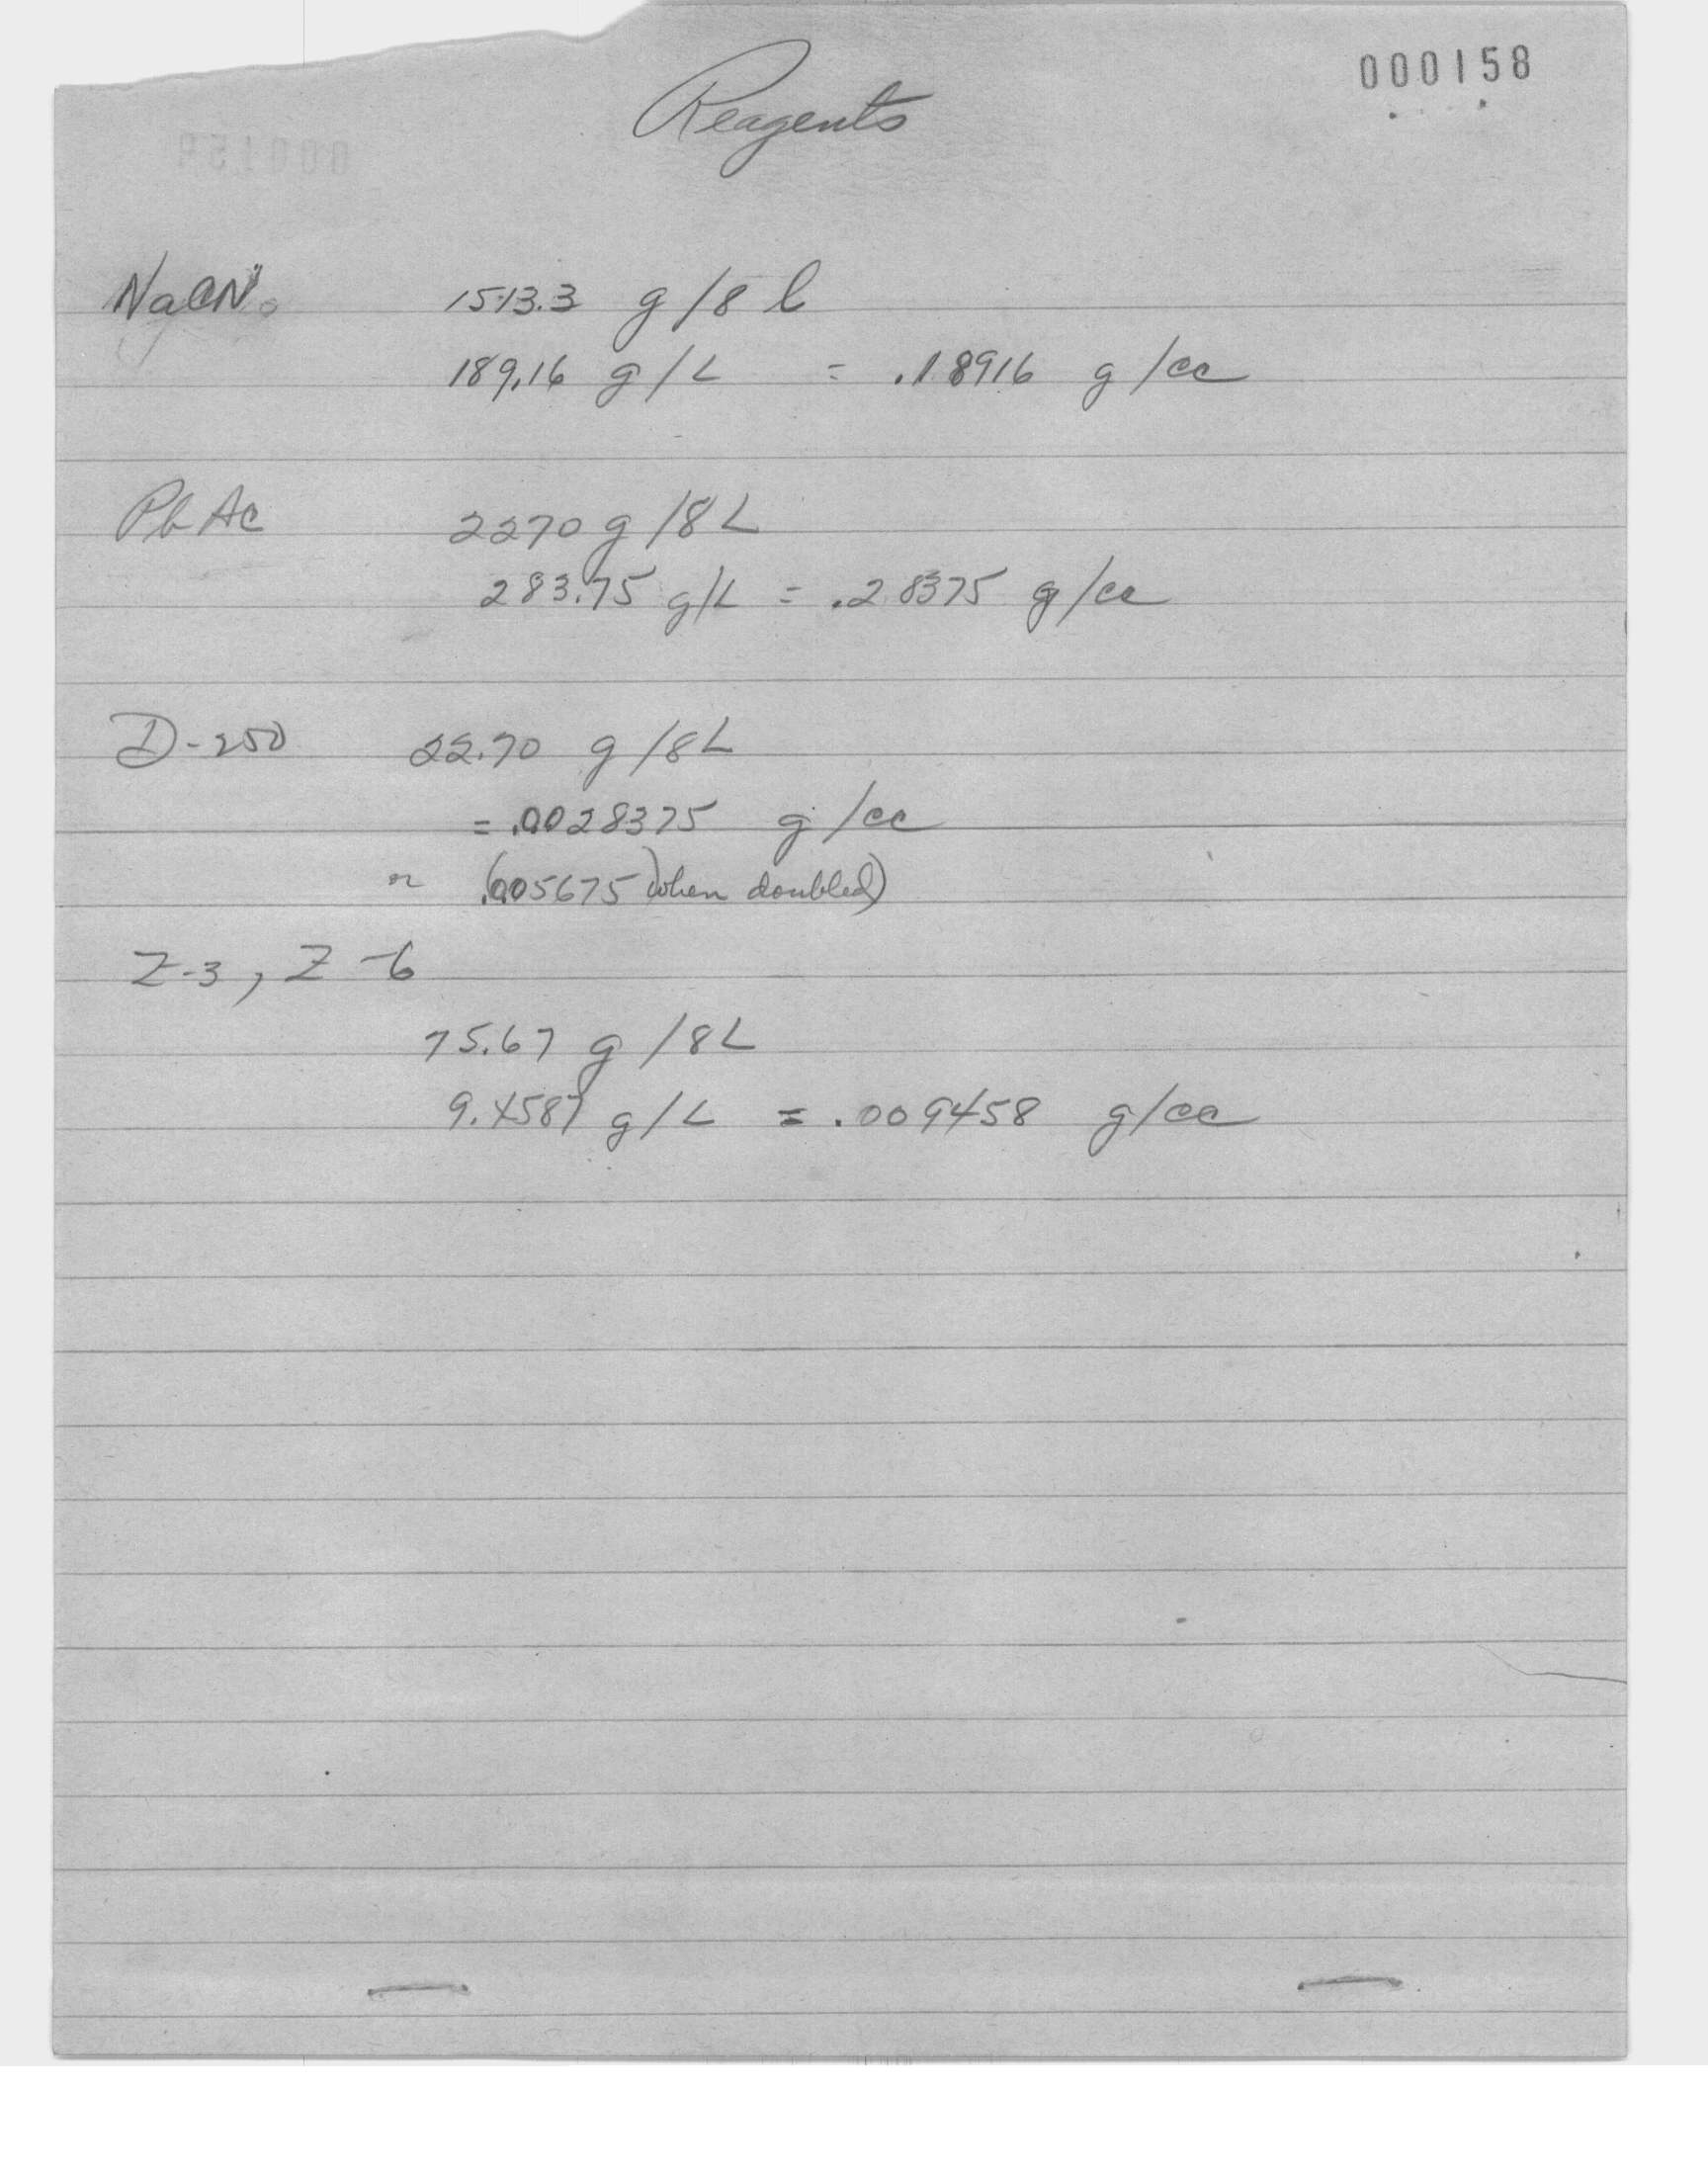 000158
Reagents
NaCN
1513.3 g/8 l
189.16 g/L = .18916 g/cc
Pb Ac
2270 g/8 L
283.75 g/L = .28375 g/cc
D-250 22.70 g/8L
= .0028375 g/cc
or (.005675) when doubled)
Z-3, Z-6
75.67 g/8L
9.4587 g/L = .009458 g/cc